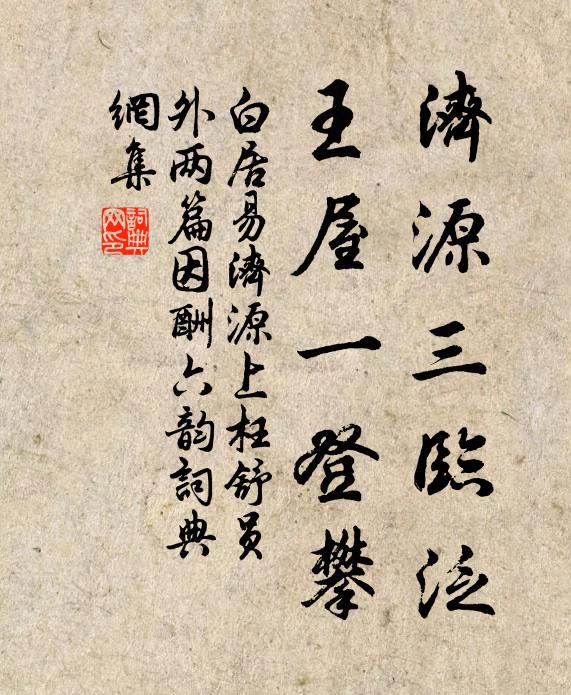 濟源三臨泛
王屋一登攀
白居易濟源上枉舒员
外两篇因酬六韵詞典
網集
詞典网印